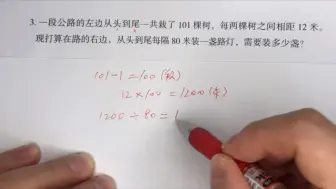 3. 一段公路的左边从头到尾一共栽了 101 棵树，每两棵树之间相距 12 米。
现打算在路的右边，从头到尾每隔 80 米装一盏路灯，需要装多少盏？
101-1=100(段)
12×100=1200(米)
1200÷80=1